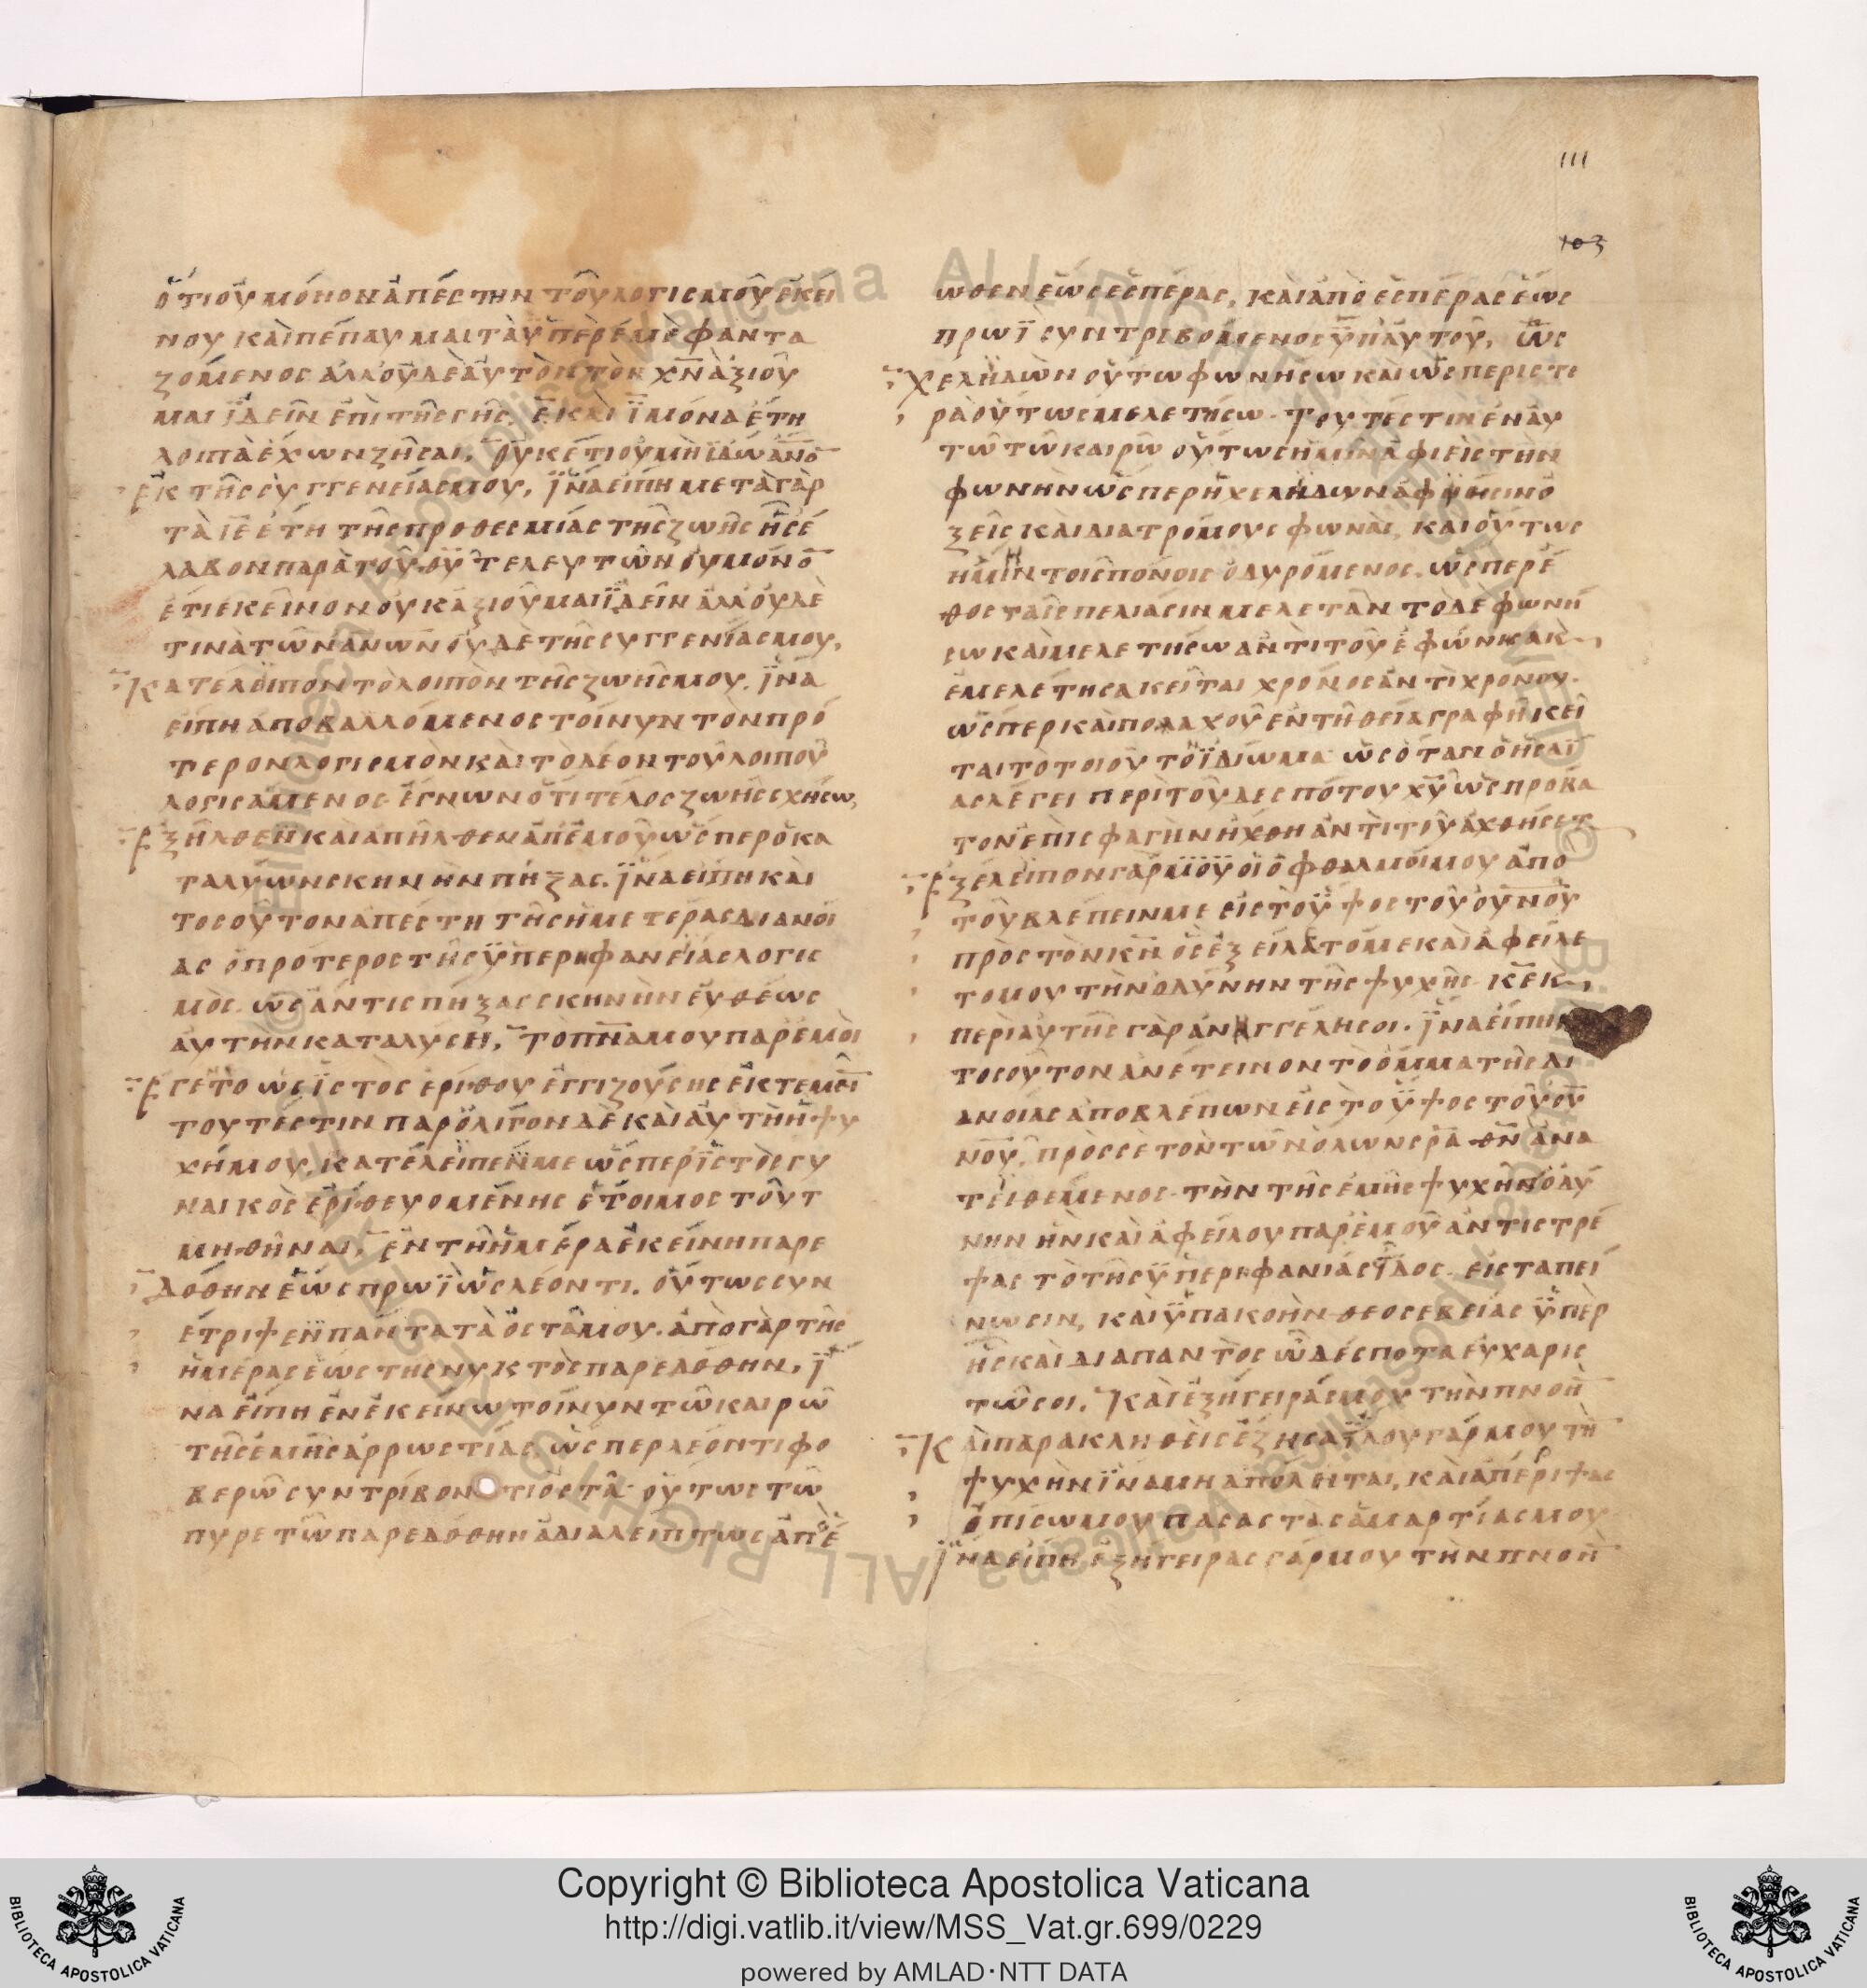 111
103
ὅτι οὐ μόνον ἀπέστην τοῦ λογισμοῦ ἐκεί
νου καὶ πέπαυμαι τὰ ὑπὲρ ἐμὲ φαντα
ζόμενος ἀλλ οὐδὲ αὐτὸν τὸν χν ἀξιοῦ
μαι ἰδεῖν ἐπὶ τῆς γῆς
λοιπὰ ἔχων ζῆσαι, οὐκέτι οὐ μὴ ἴδω ανο
ἐκ τῆς συγγενείας μου, ἵνα εἴπῃ μετὰ γὰρ
τὰ ιε ἔτη τῆς προθεσμίας τῆς ζωῆς ἧς ἔ
λαβον παρὰ τοῦ θυ τελευτῶν οὐ μόνο
ἔτι ἐκεῖνον οὐκ ἀξιοῦμαι ἰδεῖν ἀλλ οὐδέ
τινὰ τῶν ανων οὐδὲ τῆς συγγενίας μου,
Κατέλειπον τὸ λοιπὸν τῆς ζωῆς μου. ἵνα
εἴπῃ ἀποβαλλόμενος τοίνυν τὸν πρό
τερον λογισμὸν καὶ τὸ δέον τοῦ λοιποῦ
λογισάμενος ἔγνων ὅτι τέλος ζωῆς σχήσω,
Ἐξῆλθεν καὶ ἀπῆλθεν ἀπ ἐμοῦ ὥσπερ ὁ κα
ταλύων σκηνὴν πήξας. ἵνα εἴπῃ καὶ
τοσοῦτον ἀπέστη τῆς ἡμετέρας διανοί
ας ὁ πρότερος τῆς ὑπερηφανείας λογισ
μὸς ὡς ἄν τις πήξας σκηνὴν εὐθέως
αὐτὴν καταλύσῃ, Τὸ πνα μου παρ ἐμοὶ
ἐγέτο ὡς ἱστὸς ἐρίθου ἐγγιζούσης ἐκτεμεῖ
τουτέστιν παρ ὀλίγον δὲ καὶ αὐτὴ ἡ ψυ
χή μου, κατέλειπέν με ὥσπερ ἱστὸς γυ
ναικὸς ἐριθευομένης ἕτοιμος τοῦ τ
μηθῆναι, Ἐν τῇ ἡμέρα ἐκείνη παρε
δόθην ἕως πρωῒ ὡς λέοντι. οὕτως συν
έτριψεν πάντα τὰ ὀστᾶ μου. ἀπὸ γὰρ τῆς
ἡμέρας ἕως τῆς νυκτὸς παρεδόθην, ἵ
να εἴπῃ ἐν ἐκείνω τοίνυν τῶ καιρῶ
τῆς ἐμῆς ἀρρωστίας, ὥσπερ λέοντι φο
βερῶ συντρίβοντι ὀστᾶ οὕτως τῶ
πυρετῶ παρεδόθην ἀδιαλείπτως ἀπὸ ἑ
ωθεν ἕως ἑσπέρας, καὶ ἀπὸ ἑσπέρας ἕως
πρωῒ συντριβόμενος ὑπ αὐτοῦ, Ὡς
χελιδὼν οὕτω φωνήσω καὶ ὡς περιστε
ρὰ οὕτως μελετήσω. Τουτέστιν ἐν αὐ
τῶ τῶ καιρῶ οὕτως ἡμῖν ἀφιεὶς τὴν
φωνὴν ὥσπερ ἡ χελιδὼν ἀφίησιν ὀ
ξεῖς καὶ διατρόμους φωνὰς, καὶ οὕτως
ἡμῖν τοῖς πόνοις ὀδυρόμενος. ὥσπερ ἔ
θος ταῖς πελιάσιν μελετᾶν τὸ δὲ φωνή
σω καὶ μελετήσω ἀντὶ τοῦ ἐφώνησα κ
ἐμελέτησα κεῖται χρόνος ἀντὶ χρόνου.
ὥσπερ καὶ πολλαχοῦ ἐν τῆ θεία γραφῆ κεῖ
ται τὸ τοιοῦτο ἰδίωμα ὡς ὅταν ὁ ησαΐ
ας λέγει περὶ τοῦ δεσπότου χυ ὡς πρόβα
τον ἐπὶ σφαγὴν ἤχθη ἀντὶ τοῦ ἀχθήσετ
Ἐξέλειπον γάρ μου οἱ ὀφθαλμοί μου ἀπὸ
τοῦ βλέπειν με εἰς τὸ ὕψος τοῦ ουνου
πρὸς τὸν κν ὃς ἐξείλατό με καὶ ἀφείλε
το μου τὴν ὀδύνην τῆς ψυχῆς κε κ
περὶ αὐτῆς γὰρ ἀνηγγέλη σοι. ἵνα εἴπῃ
τοσοῦτον ἀνέτεινον τὸ ὄμμα τῆς δι
ανοίας ἀποβλέπων εἰς τὸ ὕψος τοῦ ου
νου, πρὸς σὲ τὸν τῶν ὅλων σρα θν ἀνα
τιθέμενος τὴν τῆς ἐμῆς ψυχῆς ὀδύ
νην ἣν καὶ ἀφείλου παρ ἐμοῦ ἀντιστρέ
ψας τὸ τῆς ὑπερηφανίας εἶδος εἰς ταπεί
νωσιν, καὶ ὑπακοὴν θεοσεβείας ὑπὲρ
ἧς καὶ διαπαντὸς ὦ δέσποτα εὐχαρισ
τῶ σοι. Καὶ ἐξήγειράς μου τὴν πνοὴ
Καὶ παρακληθεὶς ἔζησα εἵλου γάρ μου τὴ
ψυχὴν ἵνα μὴ ἀπόληται, καὶ ἀπέριψας
ὀπίσω μου πάσας τὰς ἁμαρτίας μου
ἵνα εἴπῃ ἐξήγειρας γάρ μου τὴν πνοὴ
Copyright © Biblioteca Apostolica Vaticana
http://digi.vatlib.it/view/MSS_Vat.gr.699/0229
powered by AMLAD・NTT DATA
BIBLIOTECA APOSTOLICA VATICANA
BIBLIOTECA APOSTOLICA VATICANA